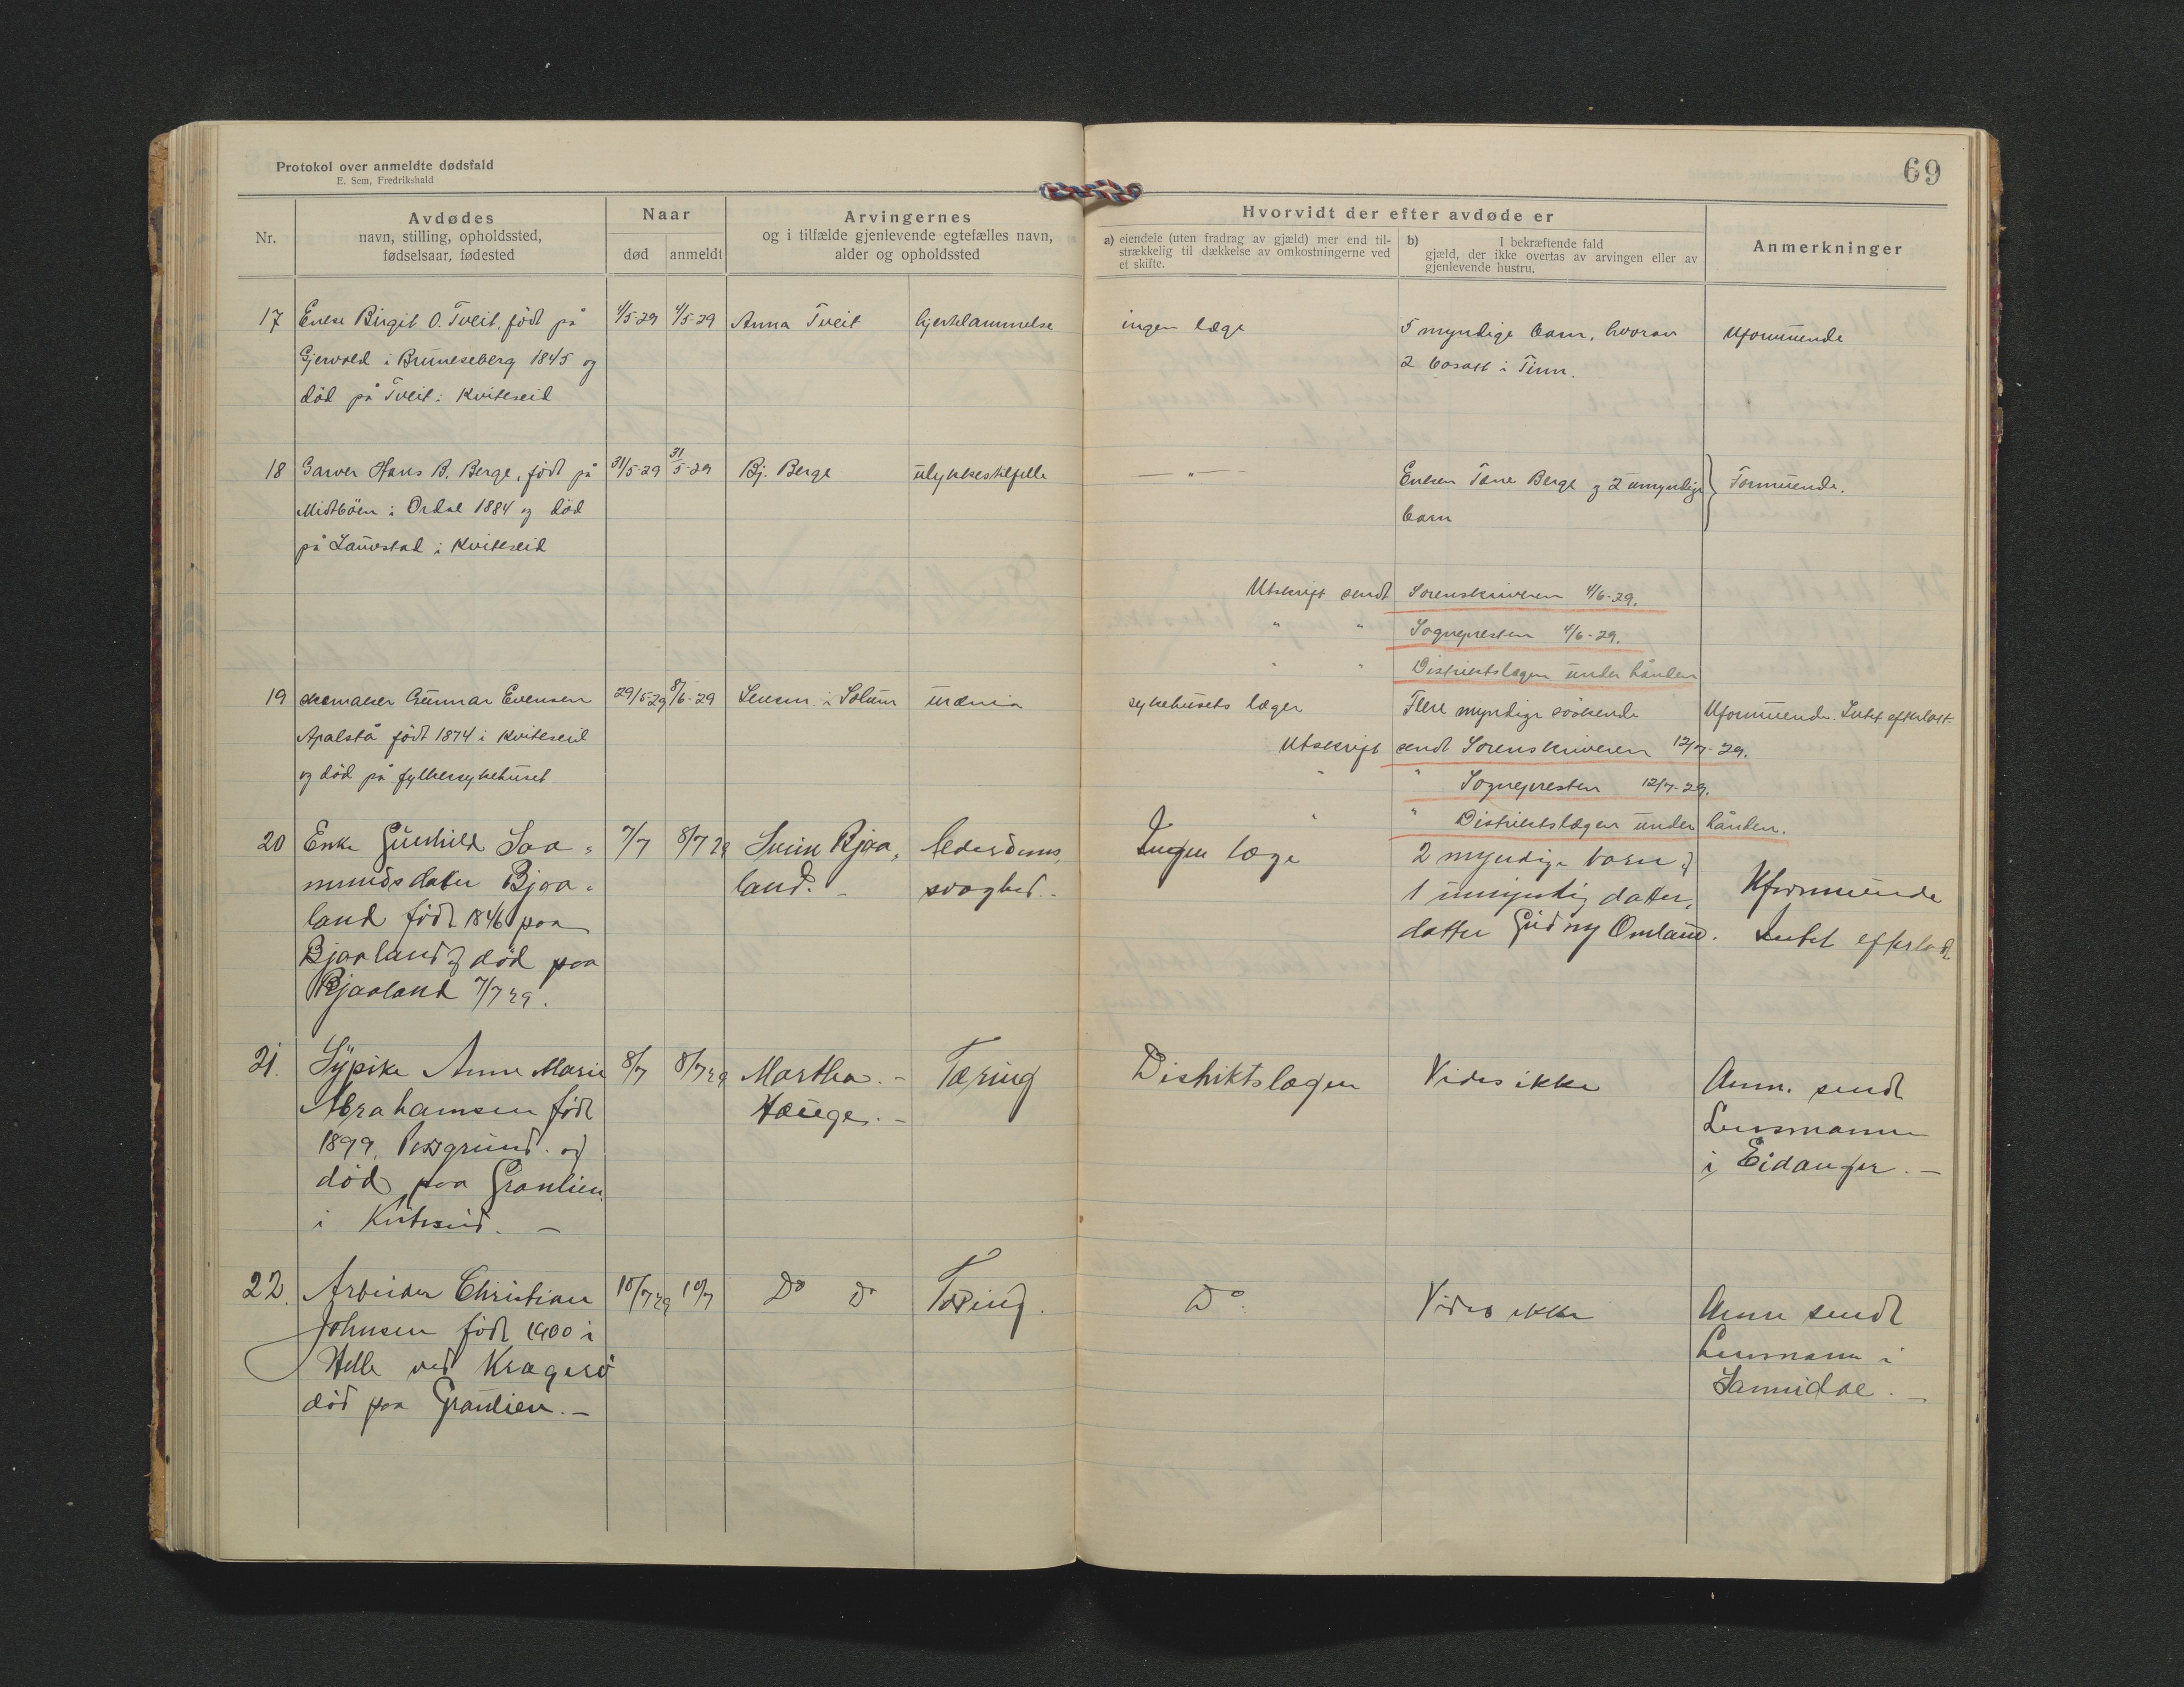 Protokol over anmeldte dødsfald
E. Sem, Fredrikshald
69
Nr.
Avdødes
navn, stilling, opholdssted,
fødselsaar, fødested
Naar
død
anmeldt
Arvingernes
og i tilfælde gjenlevende egtefælles navn,
alder og opholdssted
Hvorvidt der efter avdøde er
a) eiendele (uten fradrag av gjæld) mer end til-
strækkelig til dækkelse av omkostningerne ved
et skifte.
b) I bekræftende fald
gjæld, der ikke overtas av arvingen eller av
gjenlevende hustru.
Anmerkninger
17 Enke Birgit O. Tveit, födt på 4/5-29 4/5-29 Anna Tveit hjertelammelse ingen læge 5 myndige barn, hvorav Uformuende
i Bruneseberg 1845 og 2 bosatt i Tinn.
död på Tveit i Kviteseid
18 Garver Hans B. Berge, födt på 31/5-29 31/5-29 Bj. Berge ulykkestilfelle — " — Enken Tone Berge og 2 umyndige Formuende.
Midtböen i Ordal 1884 og död barn
på Lauvstad i Kviteseid
Utskrift sendt Sorenskriveren 4/6-29.
" " Sognepresten 4/6-29.
" " Distriktslægen under hånden
19 Gunnar Evensen 29/5-29 8/6-29 Lensm. i Solum urænia sykehusets læger Flere myndige söskende Uformuende. Intet efterlatt.
Apalstå födt 1874 i Kviteseid Utskrift sendt Sorenskriveren 12/7-29.
og död på fylkessykehuset " " Sognepresten 12/7-29.
" " Distriktslægen under hånden.
20 Enke Gunhild Saa- 7/7 8/7 29 Svein Bjaa- alderdoms- Ingen læge 2 myndige barn og
mundsdatter Bjaa- land. - svaghed. - 1 umyndig datter- Uformuende
land födt 1846 paa datter Gudny Omland. Intet efterladt
Bjaaland og död paa
Bjaaland 7/7 29.
21. Sypike Anne Marie 8/7 8/7 29 Martha - Tæring Distriktslægen Vides ikke Anm. sendt
Abrahamsen födt Hauge. - Lensmannen
1899, Porsgrund og i Eidanger. -
död paa Granlien
i Kviteseid. -
22. Arbeider Christian 10/7 29 10/7 Do Do Tæring. Do. Vides ikke Anm sendt
Johnsen födt 1900 i Lensmann i
Helle ved Kragerö Sannidal. -
död paa Granlien. -